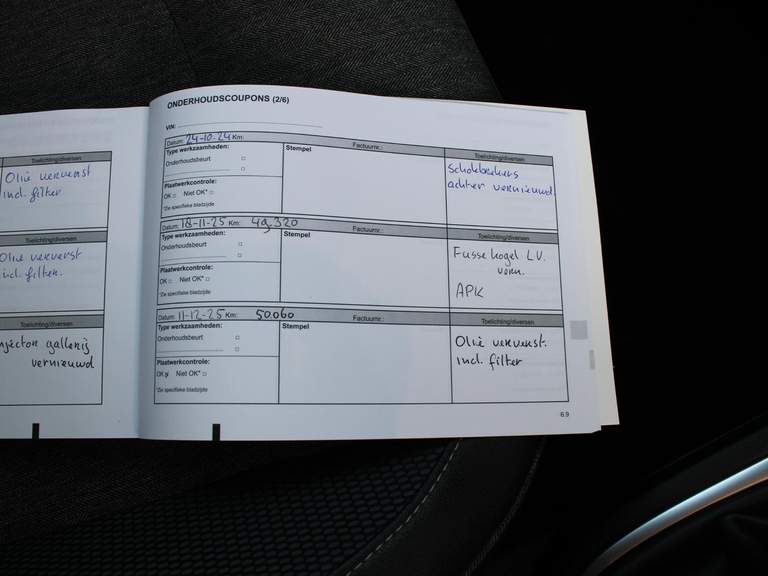 Toelichting/diversen
Olie ververst
incl. filter
Toelichting/diversen
Olie ververst
incl. filter.
Toelichting/diversen
injector gallerij
vernieuwd
ONDERHOUDSCOUPONS (2/6)
VIN:
Datum: 24-10-24 Km: Factuurnr.: Toelichting/diversen
Type werkzaamheden: Stempel
Onderhoudsbeurt
Plaatwerkcontrole:
OK Niet OK*
*Zie specifieke bladzijde
Schokbrekers
achter vernieuwd
Datum: 18-11-25 Km: 49.320 Factuurnr.: Toelichting/diversen
Type werkzaamheden: Stempel
Onderhoudsbeurt
Plaatwerkcontrole:
OK Niet OK*
*Zie specifieke bladzijde
Fusse kogel L.V.
vern.
APK
Datum: 11-12-25 Km: 50.060 Factuurnr.: Toelichting/diversen
Type werkzaamheden: Stempel
Onderhoudsbeurt
Plaatwerkcontrole:
OK Niet OK*
*Zie specifieke bladzijde
Olie ververst.
incl. filter
6.9